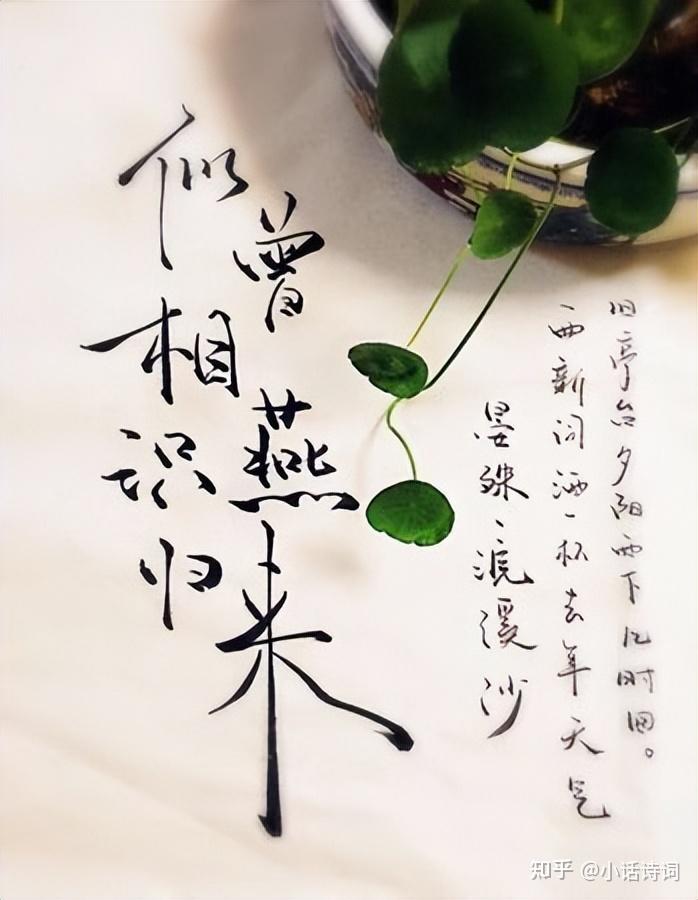 似曾相识燕归来
晏殊、浣溪沙
一曲新词酒一杯去年天气
旧亭台夕阳西下几时回。
知乎 @小话诗词